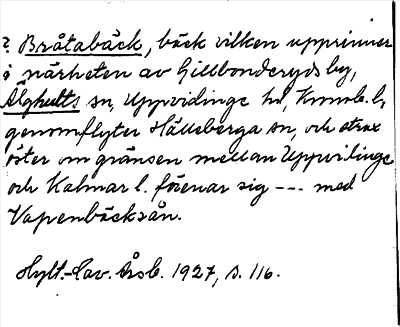 ? Bråtabäck, bäck vilken upprinner
i närheten av Gillbonderyds by,
Älghults sn, Uppvidinge hd, Kronob. l.,
genomflyter Hälleberga sn, och strax
öster om gränsen mellan Uppvidinge
och Kalmar l. förenar sig --- med
Vapenbäcksån.
Hylt.-Cav. Årsb. 1927, s. 116.